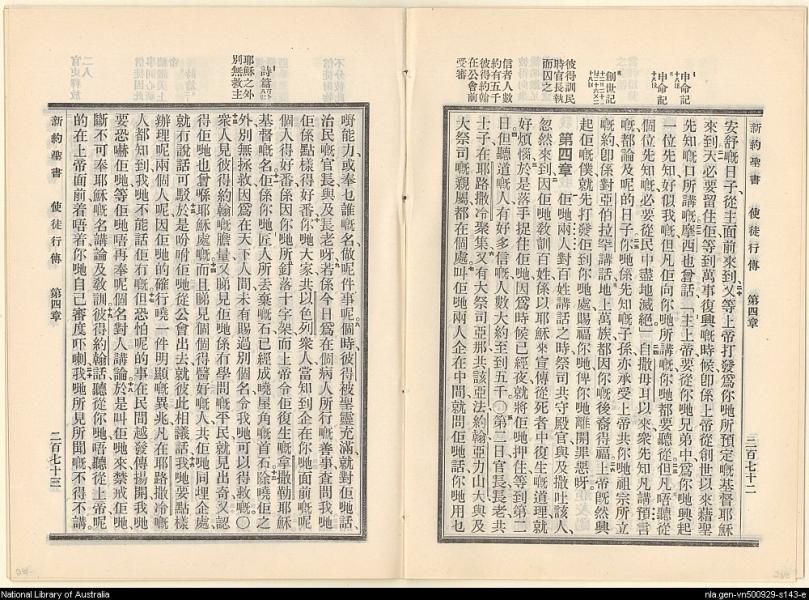 新約聖書 使徒行傳 第四章 二百七十二
安舒嘅日子從主面前來到又等上帝打發爲你哋所預定嘅基督耶穌
來到天必要留住佢等到萬事復興嘅時候卽係上帝從創世以來藉聖
先知嘅口所講嘅摩西也曾話主上帝要從你哋兄弟中爲你哋興起
一位先知好似我嘅但凡佢向你哋所講嘅你都要聽從但凡唔聽從
個位先知嘅必要從民中盡地滅絕自撒母耳以來衆先知凡講預言
嘅都論及呢的日子你哋係先知嘅子孫亦承受上帝共你哋祖宗所立
嘅約卽係對亞伯拉罕講話地上萬族都因你嘅後裔得福上帝旣然興
起佢嘅僕就先打發佢到你哋處賜福你哋俾你哋離開罪惡呀
第四章 佢哋兩人對百姓講話之時祭司共守殿官與及撒吐該人
忽然來到因佢哋敎訓百姓係以耶穌來宣傳從死者中復生嘅道理就
好煩惱於是落手捉住佢哋因爲時候已經夜就將佢哋押住等到第二
日但聽道嘅人有好多信嘅人數大約至到五千〇第二日官長長老共
士子在耶路撒冷聚集又有大祭司亞那共該亞法約翰亞力山大與及
大祭司嘅親屬都在個處叫佢哋兩人企在中間就問佢哋話你哋用乜
申命記
申命記
創世記
彼得訓民
時官長執
而囚之
信者人數
約有五千
彼得約翰
在公會前
受審
嘢能力或奉乜誰嘅名做呢件事呢個時彼得被聖靈充滿就對佢哋話
治民嘅官長與及長老呀若係今日爲在個病人所行嘅善事查問我哋
佢係點樣得好番你哋大家共以色列衆人當知到企在你哋面前嘅呢
個人得好番係因你哋所釘落十字架而上帝令佢復生嘅拿撒勒耶穌
基督嘅名佢係你哋匠人所丟棄嘅石已經成曉屋角嘅首石除曉佢之
外別無拯救因爲在天下人間未有賜過別個名令我哋可以得救嘅〇
衆人見彼得約翰嘅膽量又睇見佢哋係有學問嘅平民就見出奇又認
得佢哋也曾喺耶穌處嘅而且睇見個個得醫好嘅人共佢哋同埋企處
就冇說話可駁於是吩咐佢哋從公會出去就彼此相議話我哋要點樣
辦理呢兩個人呢因佢哋的確行曉一件明顯嘅異兆凡在耶路撒冷嘅
人都知到我哋不能話佢冇嘅但恐怕呢的事在民間越發傳揚開我哋
要恐嚇佢哋等佢哋唔再奉呢個名對人講論於是叫佢哋來禁戒佢哋
斷不可奉耶穌嘅名講論及敎訓彼得約翰話聽從你哋唔聽從上帝呢
的在上帝面前着唔着你哋自己審度吓喇我哋所見所聞嘅不得不講
詩篇
耶穌之外
別無救主
新約聖書 使徒行傳 第四章 二百七十三
National Library of Australia
nla.gen-vn500929-s143-e